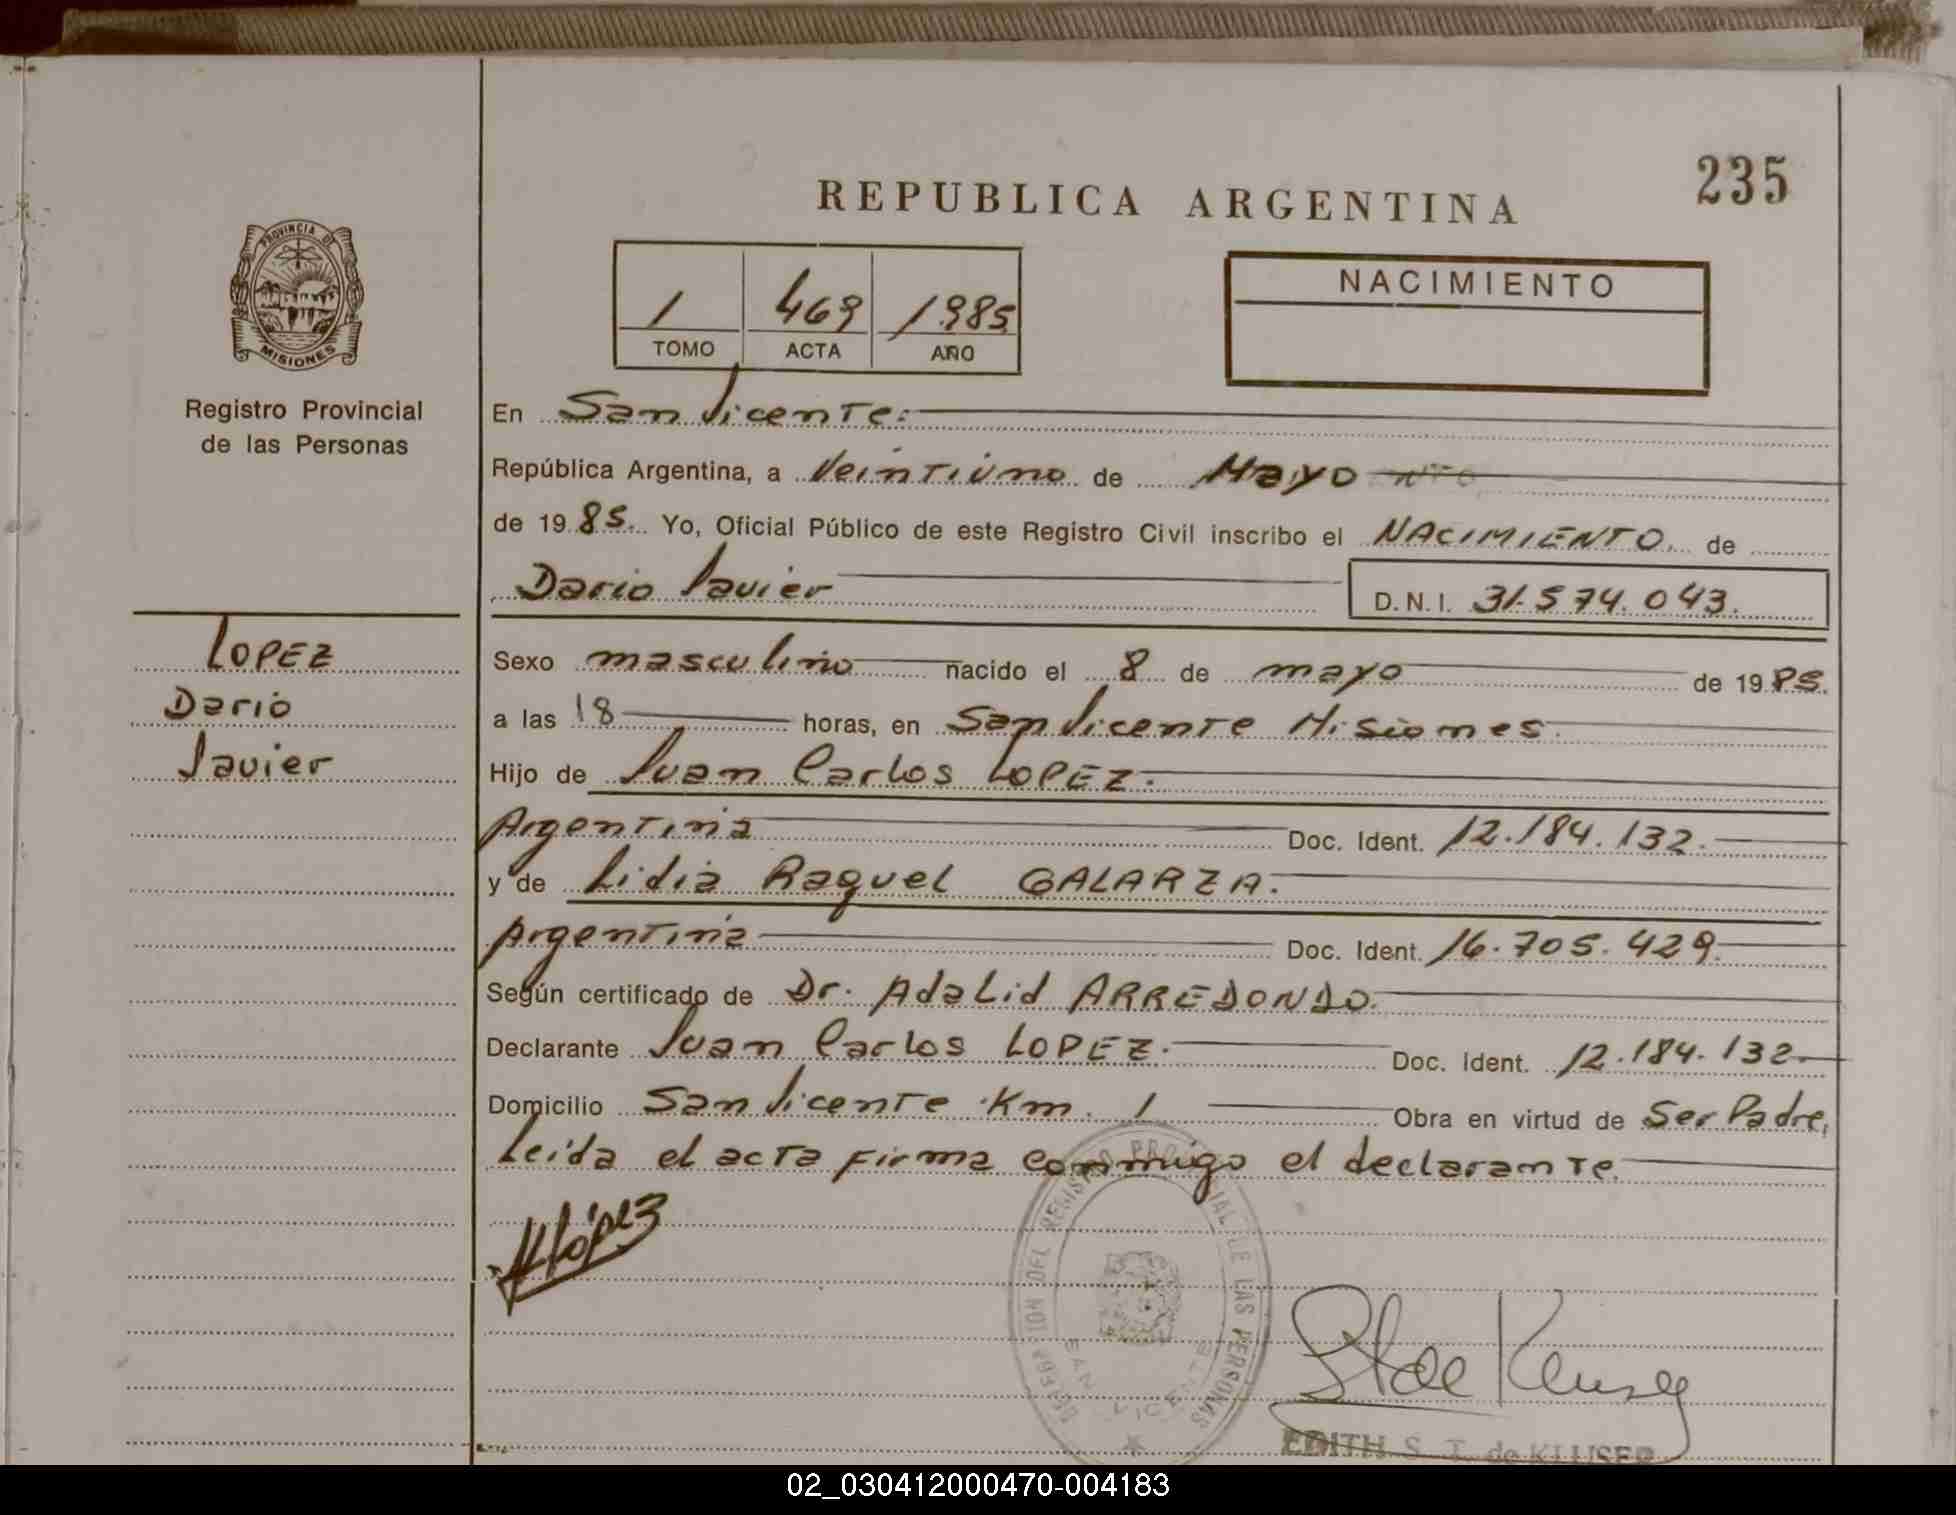 235
REPUBLICA ARGENTINA
PROVINCIA DE
MISIONES
Registro Provincial
de las Personas
1 469 1985
TOMO ACTA AÑO
NACIMIENTO
En San Vicente.
República Argentina, a Veintiuno de Mayo
de 1985. Yo, Oficial Público de este Registro Civil inscribo el NACIMIENTO. de
Dario Javier D.N.I. 31.574.043.
LOPEZ
Dario
Javier
Sexo masculino nacido el 8 de mayo de 1985.
a las 18 horas, en San Vicente Misiones.
Hijo de Juan Carlos LOPEZ.
Argentina Doc. Ident. 12.184.132.
y de Lidia Raquel GALARZA.
Argentina Doc. Ident. 16.705.429.
Según certificado de Dr. Adalid ARREDONDO.
Declarante Juan Carlos LOPEZ. Doc. Ident. 12.184.132.
Domicilio San Vicente Km. 1 Obra en virtud de Ser Padre,
Leida el acta firma conmigo el declarante.
López
DEL REGISTRO PROVINCIAL DE LAS PERSONAS
SAN VICENTE
S T de Kluser
EDITH S. T. de KLUSER
02_030412000470-004183